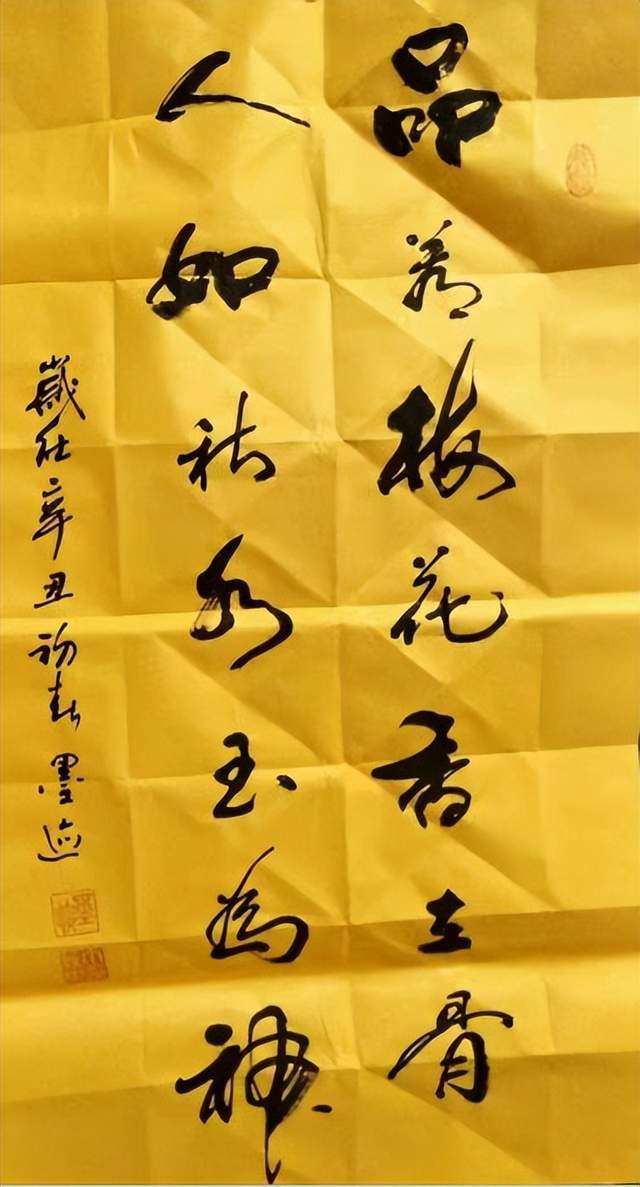 品若梅花香在骨
人如秋水玉為神
歲在辛丑初春墨